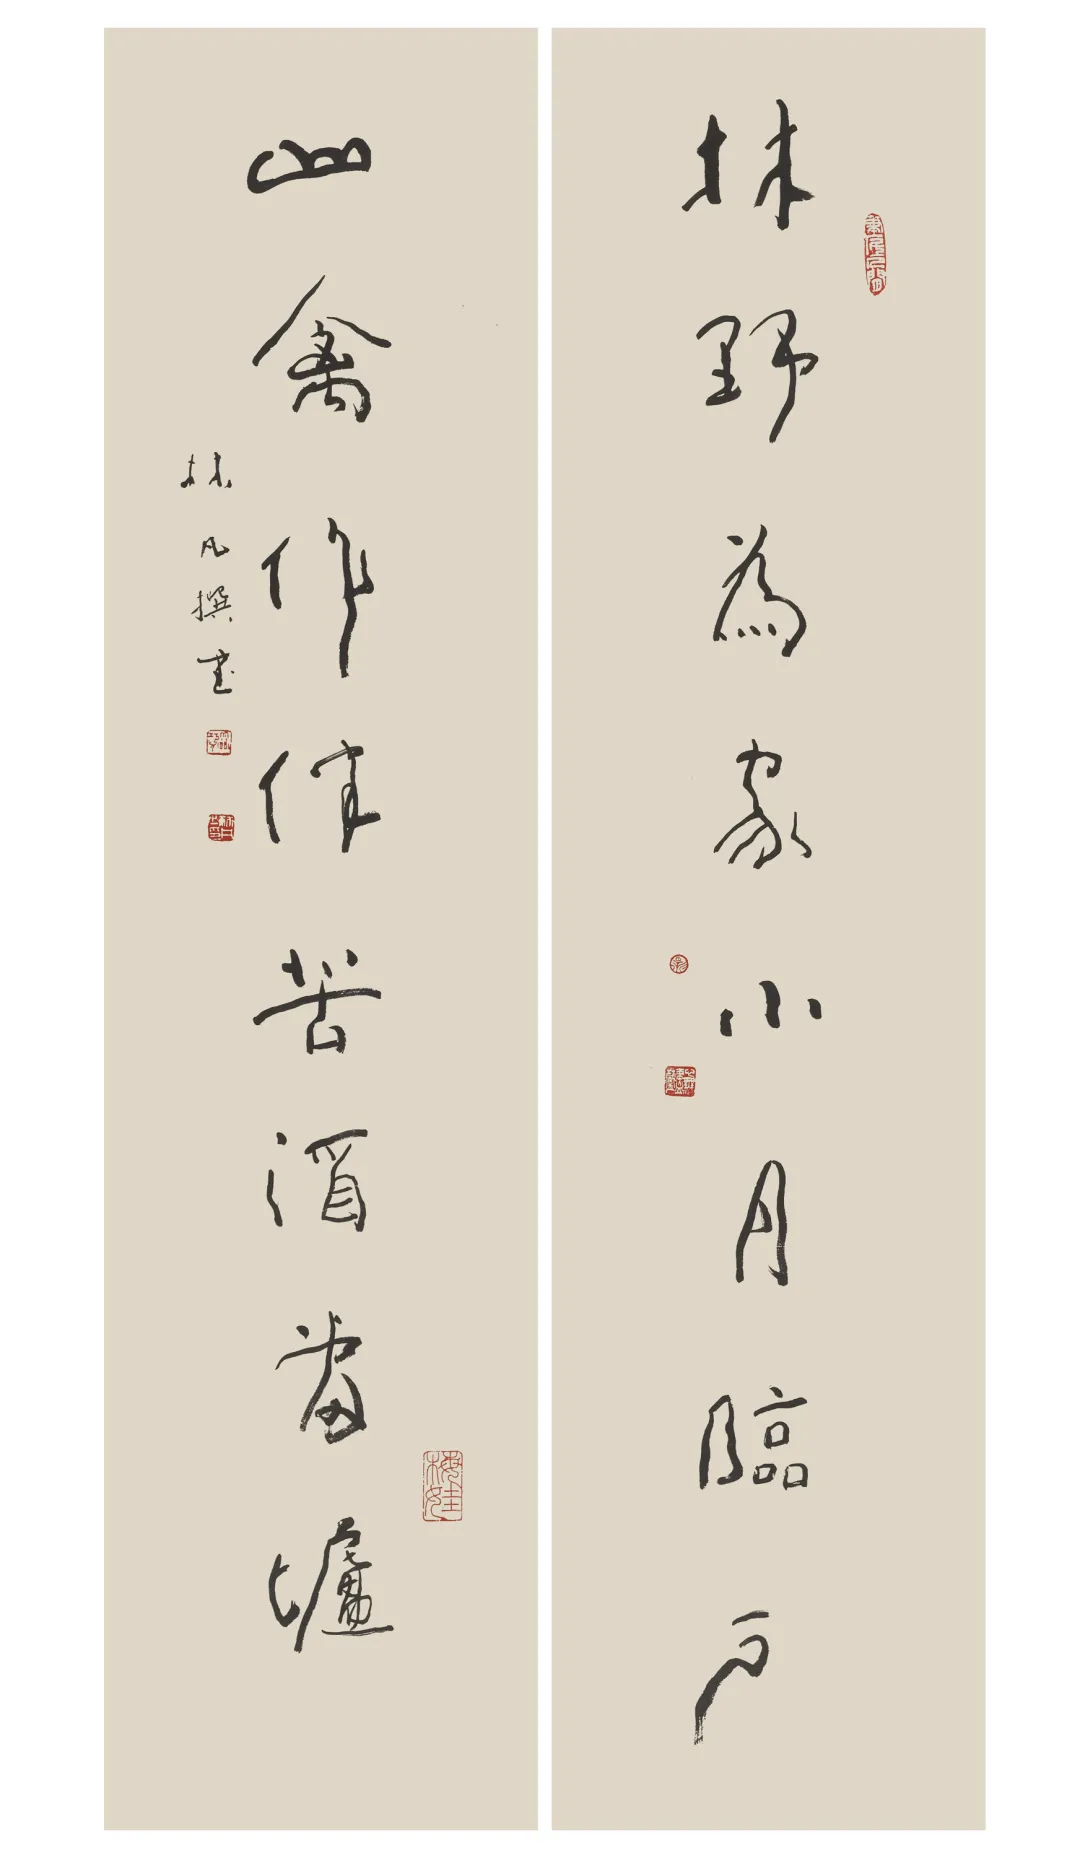 林野為家小月臨戶
山禽作伴苦酒當壚
林凡撰書
梅娃